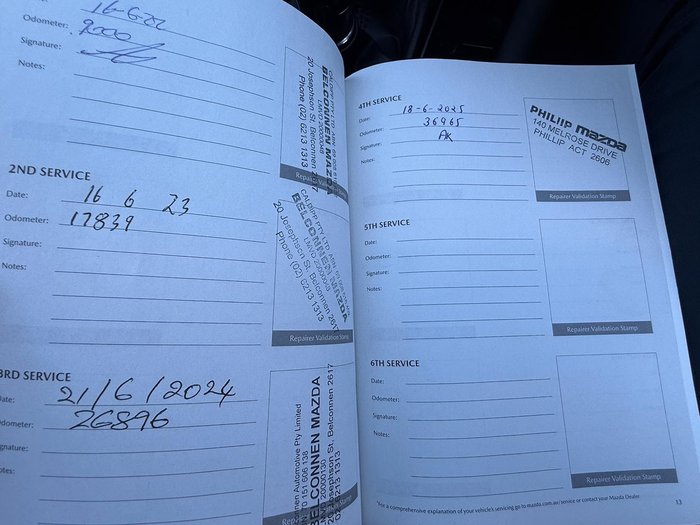 16-6-22
Odometer: 2000
Signature:
Notes:
BELCONNEN MAZDA
20 Josephson St, Belconnen 2617
Phone (02) 6213 1313
Repairer Validation Stamp
2ND SERVICE
Date: 16 6 23
Odometer: 17839
Signature:
Notes:
CALDIPP PTY LTD
BELCONNEN MAZDA
20 Josephson St, Belconnen 2617
Phone (02) 6213 1313
Repairer Validation Stamp
3RD SERVICE
Date: 21/6/2024
Odometer: 26896
Signature:
Notes:
Automotive Pty Limited
BELCONNEN MAZDA
20 Josephson St, Belconnen 2617
(02) 6213 1313
4TH SERVICE
Date: 18-6-2025
Odometer: 36965
Signature: AK
Notes:
PHILIIP mazda
140 MELROSE DRIVE
PHILLIP ACT 2606
Repairer Validation Stamp
5TH SERVICE
Date:
Odometer:
Signature:
Notes:
Repairer Validation Stamp
6TH SERVICE
Date:
Odometer:
Signature:
Notes:
Repairer Validation Stamp
*For a comprehensive explanation of your vehicle's servicing go to mazda.com.au/service or contact your Mazda Dealer.
13